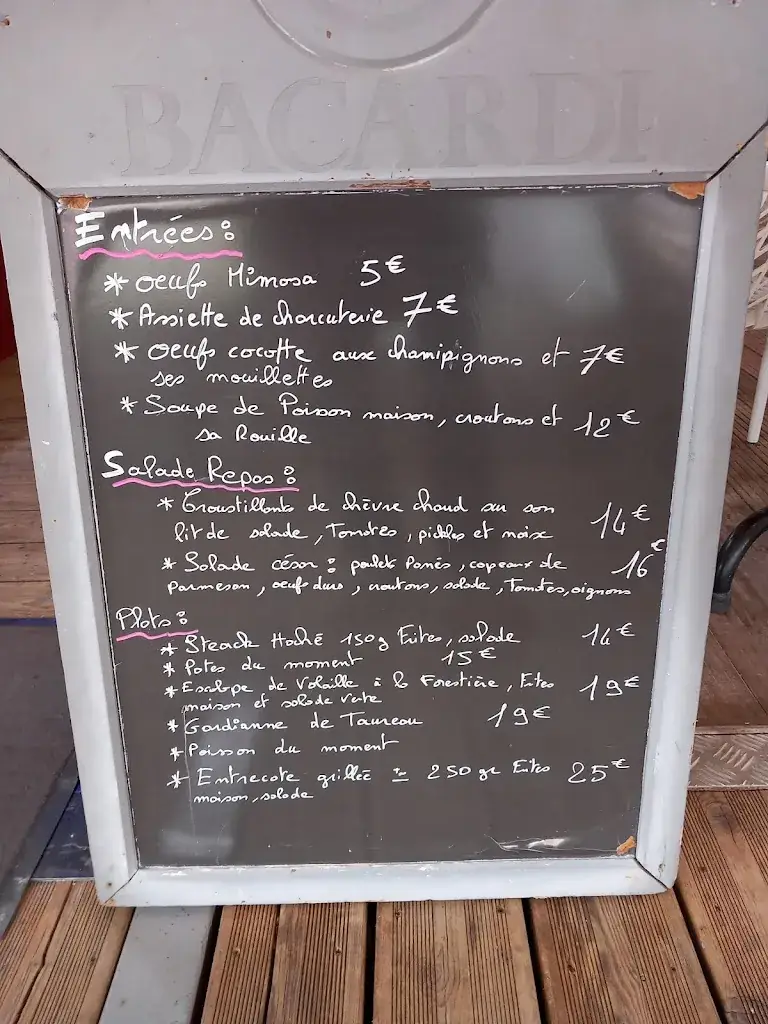 BACARDI
Entrées:
* oeufs Mimosa 5€
* Assiette de charcuterie 7€
* oeufs cocotte aux champignons et 7€
ses mouillettes
* Soupe de Poisson maison, croutons et 12€
sa Rouille
Salade Repas:
* Croustillants de chèvre chaud sur son
lit de salade, Tomates, pickles et noix 14€
* Salade césar: poulet Panés, copeaux de 16€
Parmesan, oeuf durs, croutons, salade, Tomates, oignons
Plats:
* Steack Haché 150g Frites, salade 14€
* Pates du moment 15€
* Escalope de Volaille à la Forestière, Frites 19€
maison et salade verte
* Gardianne de Taureau 19€
* Poisson du moment
* Entrecote grillée ± 250 gr Frites 25€
maison, salade